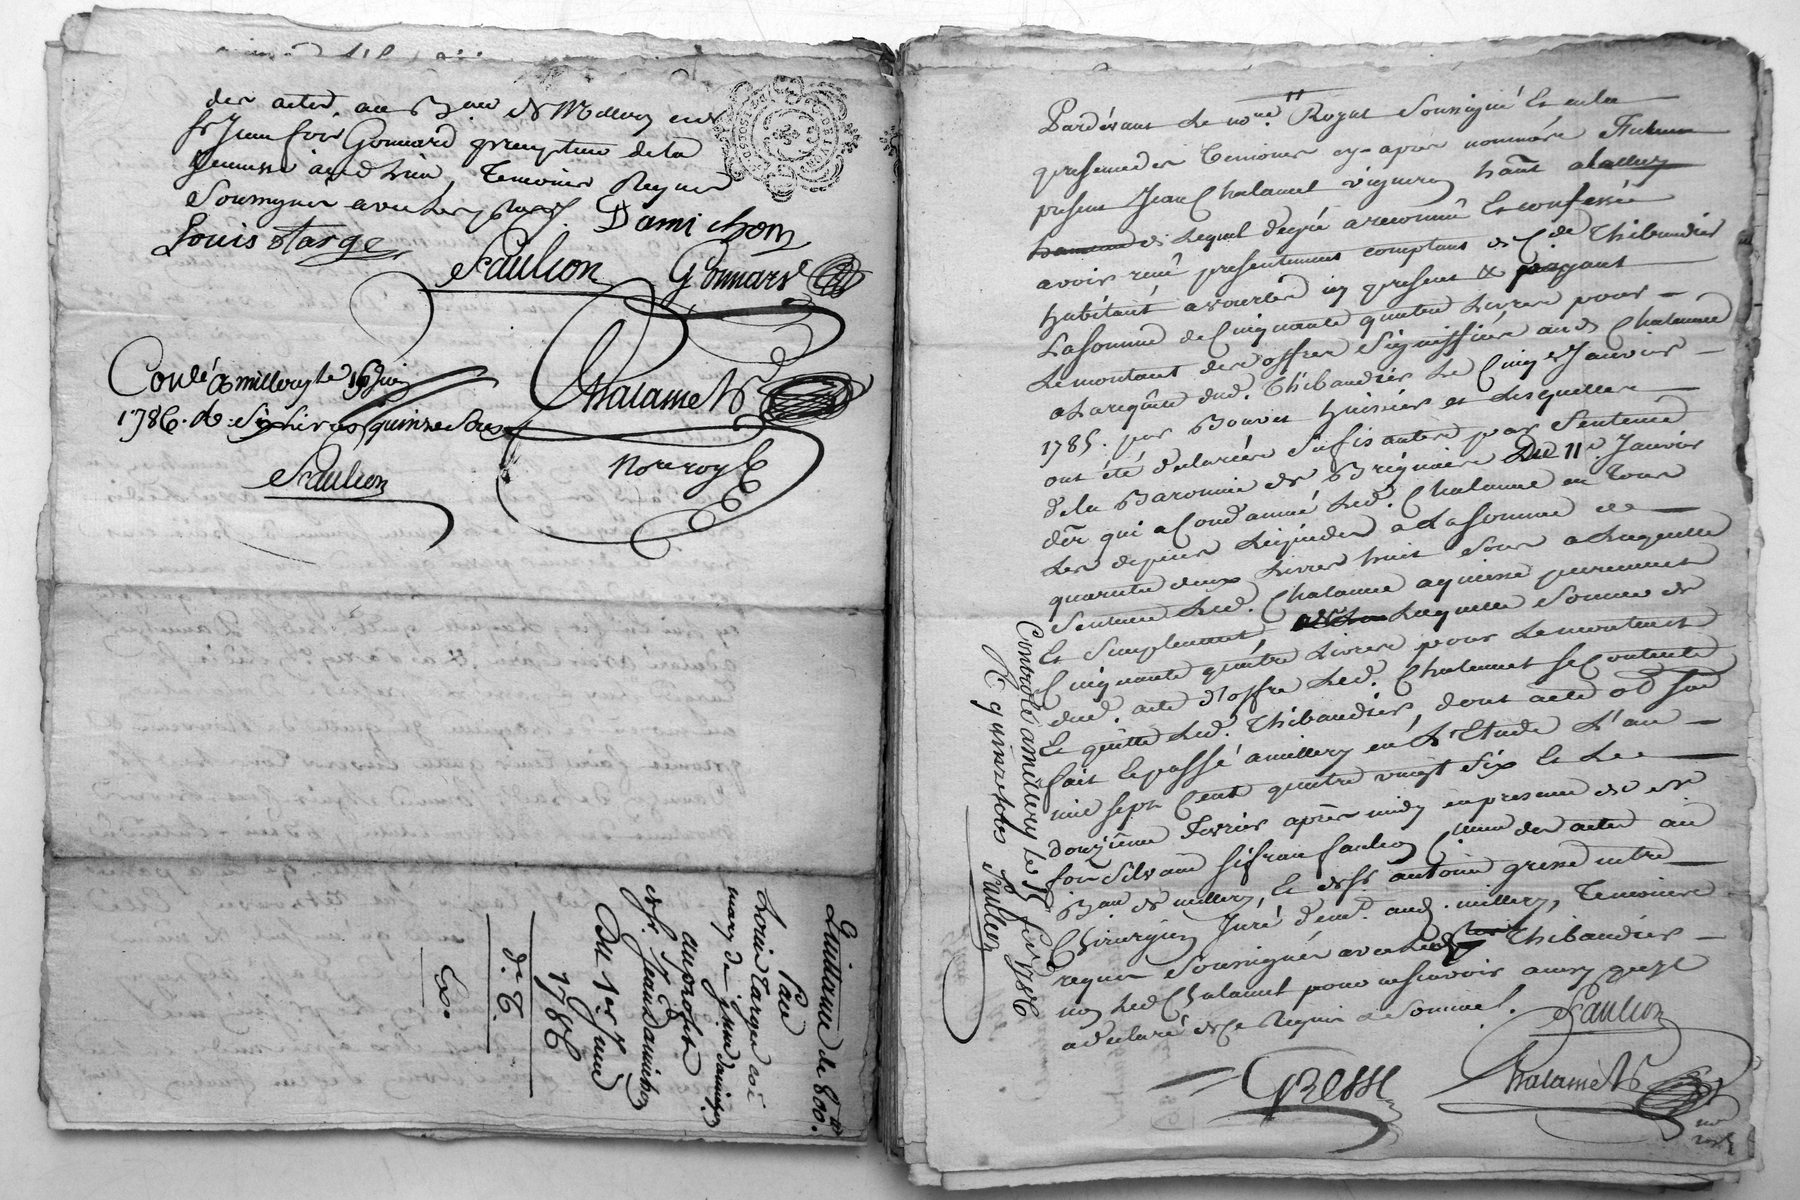 des actes au Bau de Millery et de
sr Jean fois Gonnard precepteur de la
Jeunesse aud. lieu, Temoins Requis
Soussignés avec les parties.
Damichon
Louis Farge
Saulion
Gonnard
Chalamel
Conlé a millery le 16 Juin
1786. R. Six livres quinze sols
Saulion
Nore royl
Quittance de 800.tt
Par
Louis Farge et
mary de
au profit
de sr. Jean Damichon
Du 1er Juin
1786
Par devant le nore Royal soussigné et en la
presence des Temoins cy-apres nommés
present Jean Chalamel vigneron hant a Millery
lequel de gré a reconnu et confessé
avoir reçu presentement comptant de Cde Thibaudier
habitant a vourles icy present & payant
La somme de Cinquante quatre Livres pour
Le montant des offres Signiffiés aud. Chalamel
a La requête dud. Thibaudier Le Cinq Janvier
1785. par Bouvet huissier et lesquelles
ont été declarées Sufisantes par Sentence
de la Baronnie de Brignais Du 11e Janvier
der qui a Condamné led. Chalamel en tous
Les depens liquidés a La somme de
quarante deux Livres huit Sous a laquelle
Sentence led. Chalamel aquiesse purement
Et simplement, laquelle Somme de
Cinquante quatre Livres pour Le montant
dud. acte d'offre led. Chalamel se Contente
Et quitte led. Thibaudier, dont acte
fait et passé a millery en L'Etude L'an
mil sept Cent quatre vingt six et le
douzième fevrier après midy en presence de sr
fois Silvain Sifran Saulion Commis des actes au
Bau de millery, et de sr antoine gresse maitre
Chirurgien Juré demt. aud. millery, Temoins
requis Soussignés avec led. Thibaudier
non led. Chalamel pour ne scavoir ainsy qu'il
a declaré de ce Requis et Sommé.
Saulion
Gresse
Chalamel
Controlé a millery le 15 fer 1786
R quinze sols Saulion